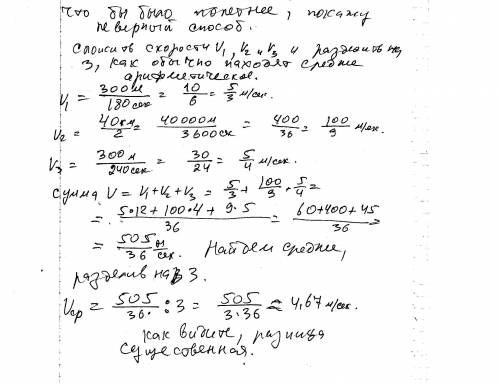 Что бы было понятнее, покажу
неверный способ.
Сложить скорости V₁, V₂ и V₃ и разделить на
3, как обычно находят средне
арифметическое.
V₁ = 300м/180сек = 10/6 = 5/3 м/сек.
V₂ = 40км/2 = 40000м/3600сек = 400/36 = 100/9 м/сек.
V₃ = 300м/240сек = 30/24 = 5/4 м/сек.
Сумма V = V₁+V₂+V₃ = 5/3 + 100/9 + 5/4 =
= (5·12+100·4+9·5)/36 = (60+400+45)/36 =
= 505/36 м/сек. Найдем среднее,
разделив на 3.
Vср = 505/36 : 3 = 505/(3·36) ≈ 4,67 м/сек.
Как видите, разница
существенная.